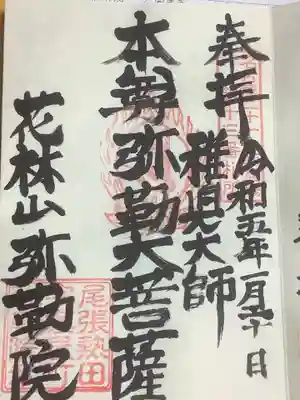 奉拝
令和五年一月十日
稚児大師
本尊弥勒大菩薩
花林山弥勒院
尾張熱田